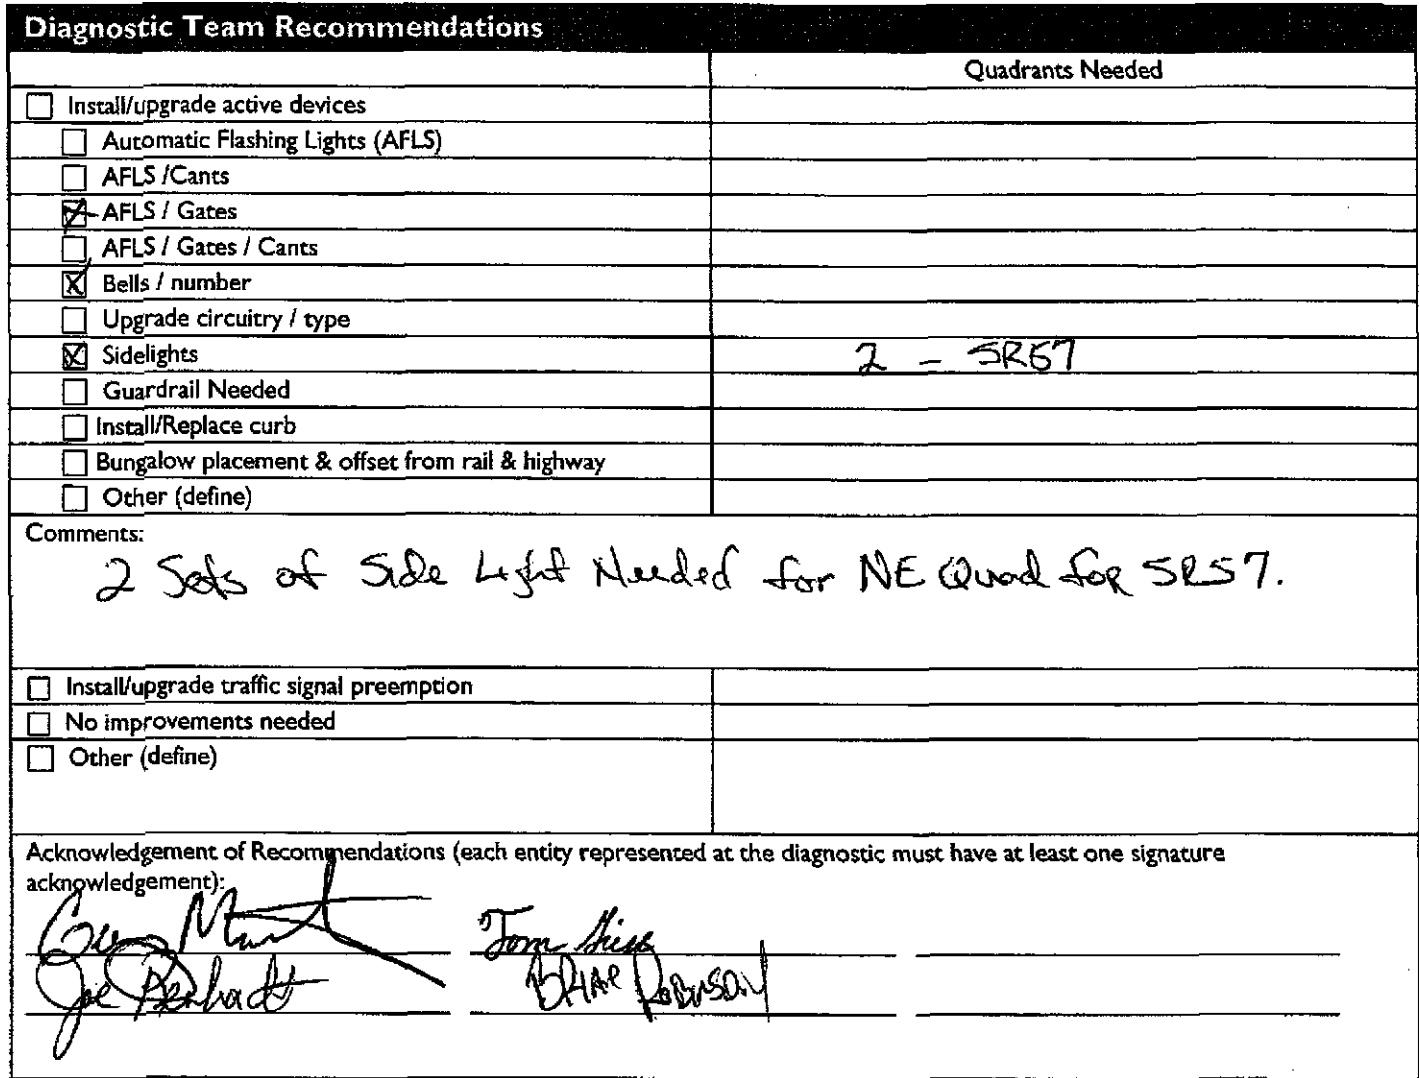 Diagnostic Team Recommendations
Quadrants Needed
☐ Install/upgrade active devices
☐ Automatic Flashing Lights (AFLS)
☐ AFLS /Cants
☒ AFLS / Gates
☐ AFLS / Gates / Cants
☒ Bells / number
☐ Upgrade circuitry / type
☒ Sidelights 2 - SR57
☐ Guardrail Needed
☐ Install/Replace curb
☐ Bungalow placement & offset from rail & highway
☐ Other (define)
Comments:
2 Sets of Side Light Needed for NE Quad for SR57.
☐ Install/upgrade traffic signal preemption
☐ No improvements needed
☐ Other (define)
Acknowledgement of Recommendations (each entity represented at the diagnostic must have at least one signature
acknowledgement):
Tom
Joe BRIAN ROBINSON